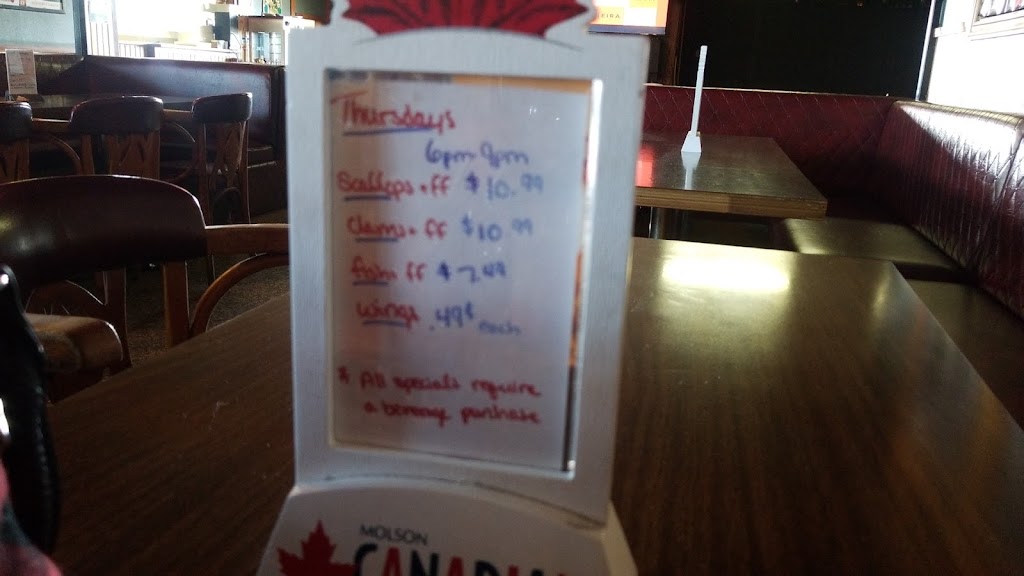 Thursdays
6pm-9pm
Scallops + ff $10.99
Clams + ff $10.99
ff $7.49
Wings .49¢ each
* All specials require
a beverage purchase
MOLSON
CANADIAN